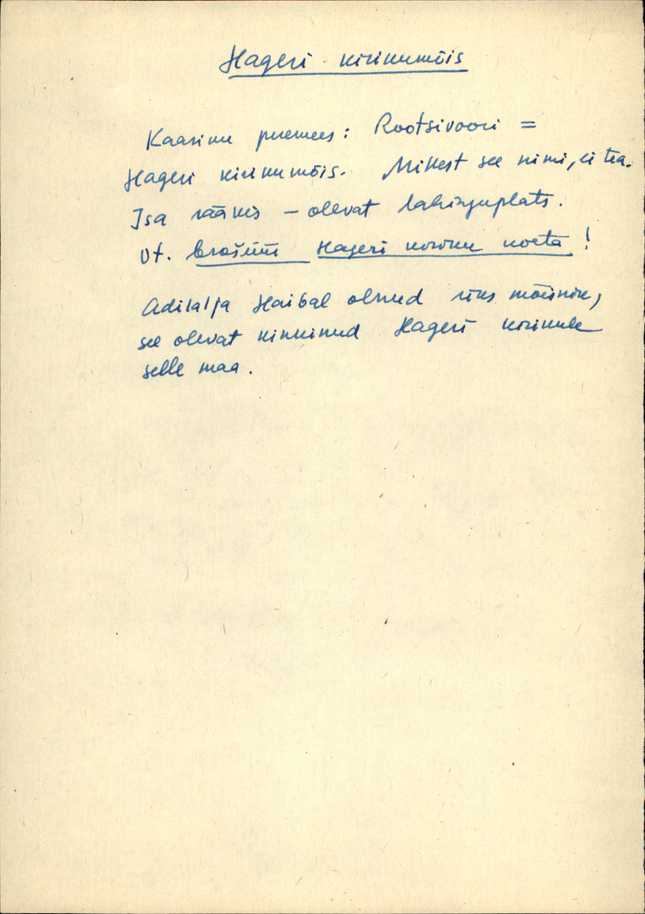 Hageri kirikumõis
Kaariku peremees: Rootsivoori =
Hageri kirikumõis. Mikest see nimi, ei tea.
Isa rääkis – olevat lahinguplats.
Vt. brošüüri Hageri kiriku kohta!
Adilal ja Haibal olnud üks mõisnik,
see olevat kinkinud Hageri kirikule
selle maa.